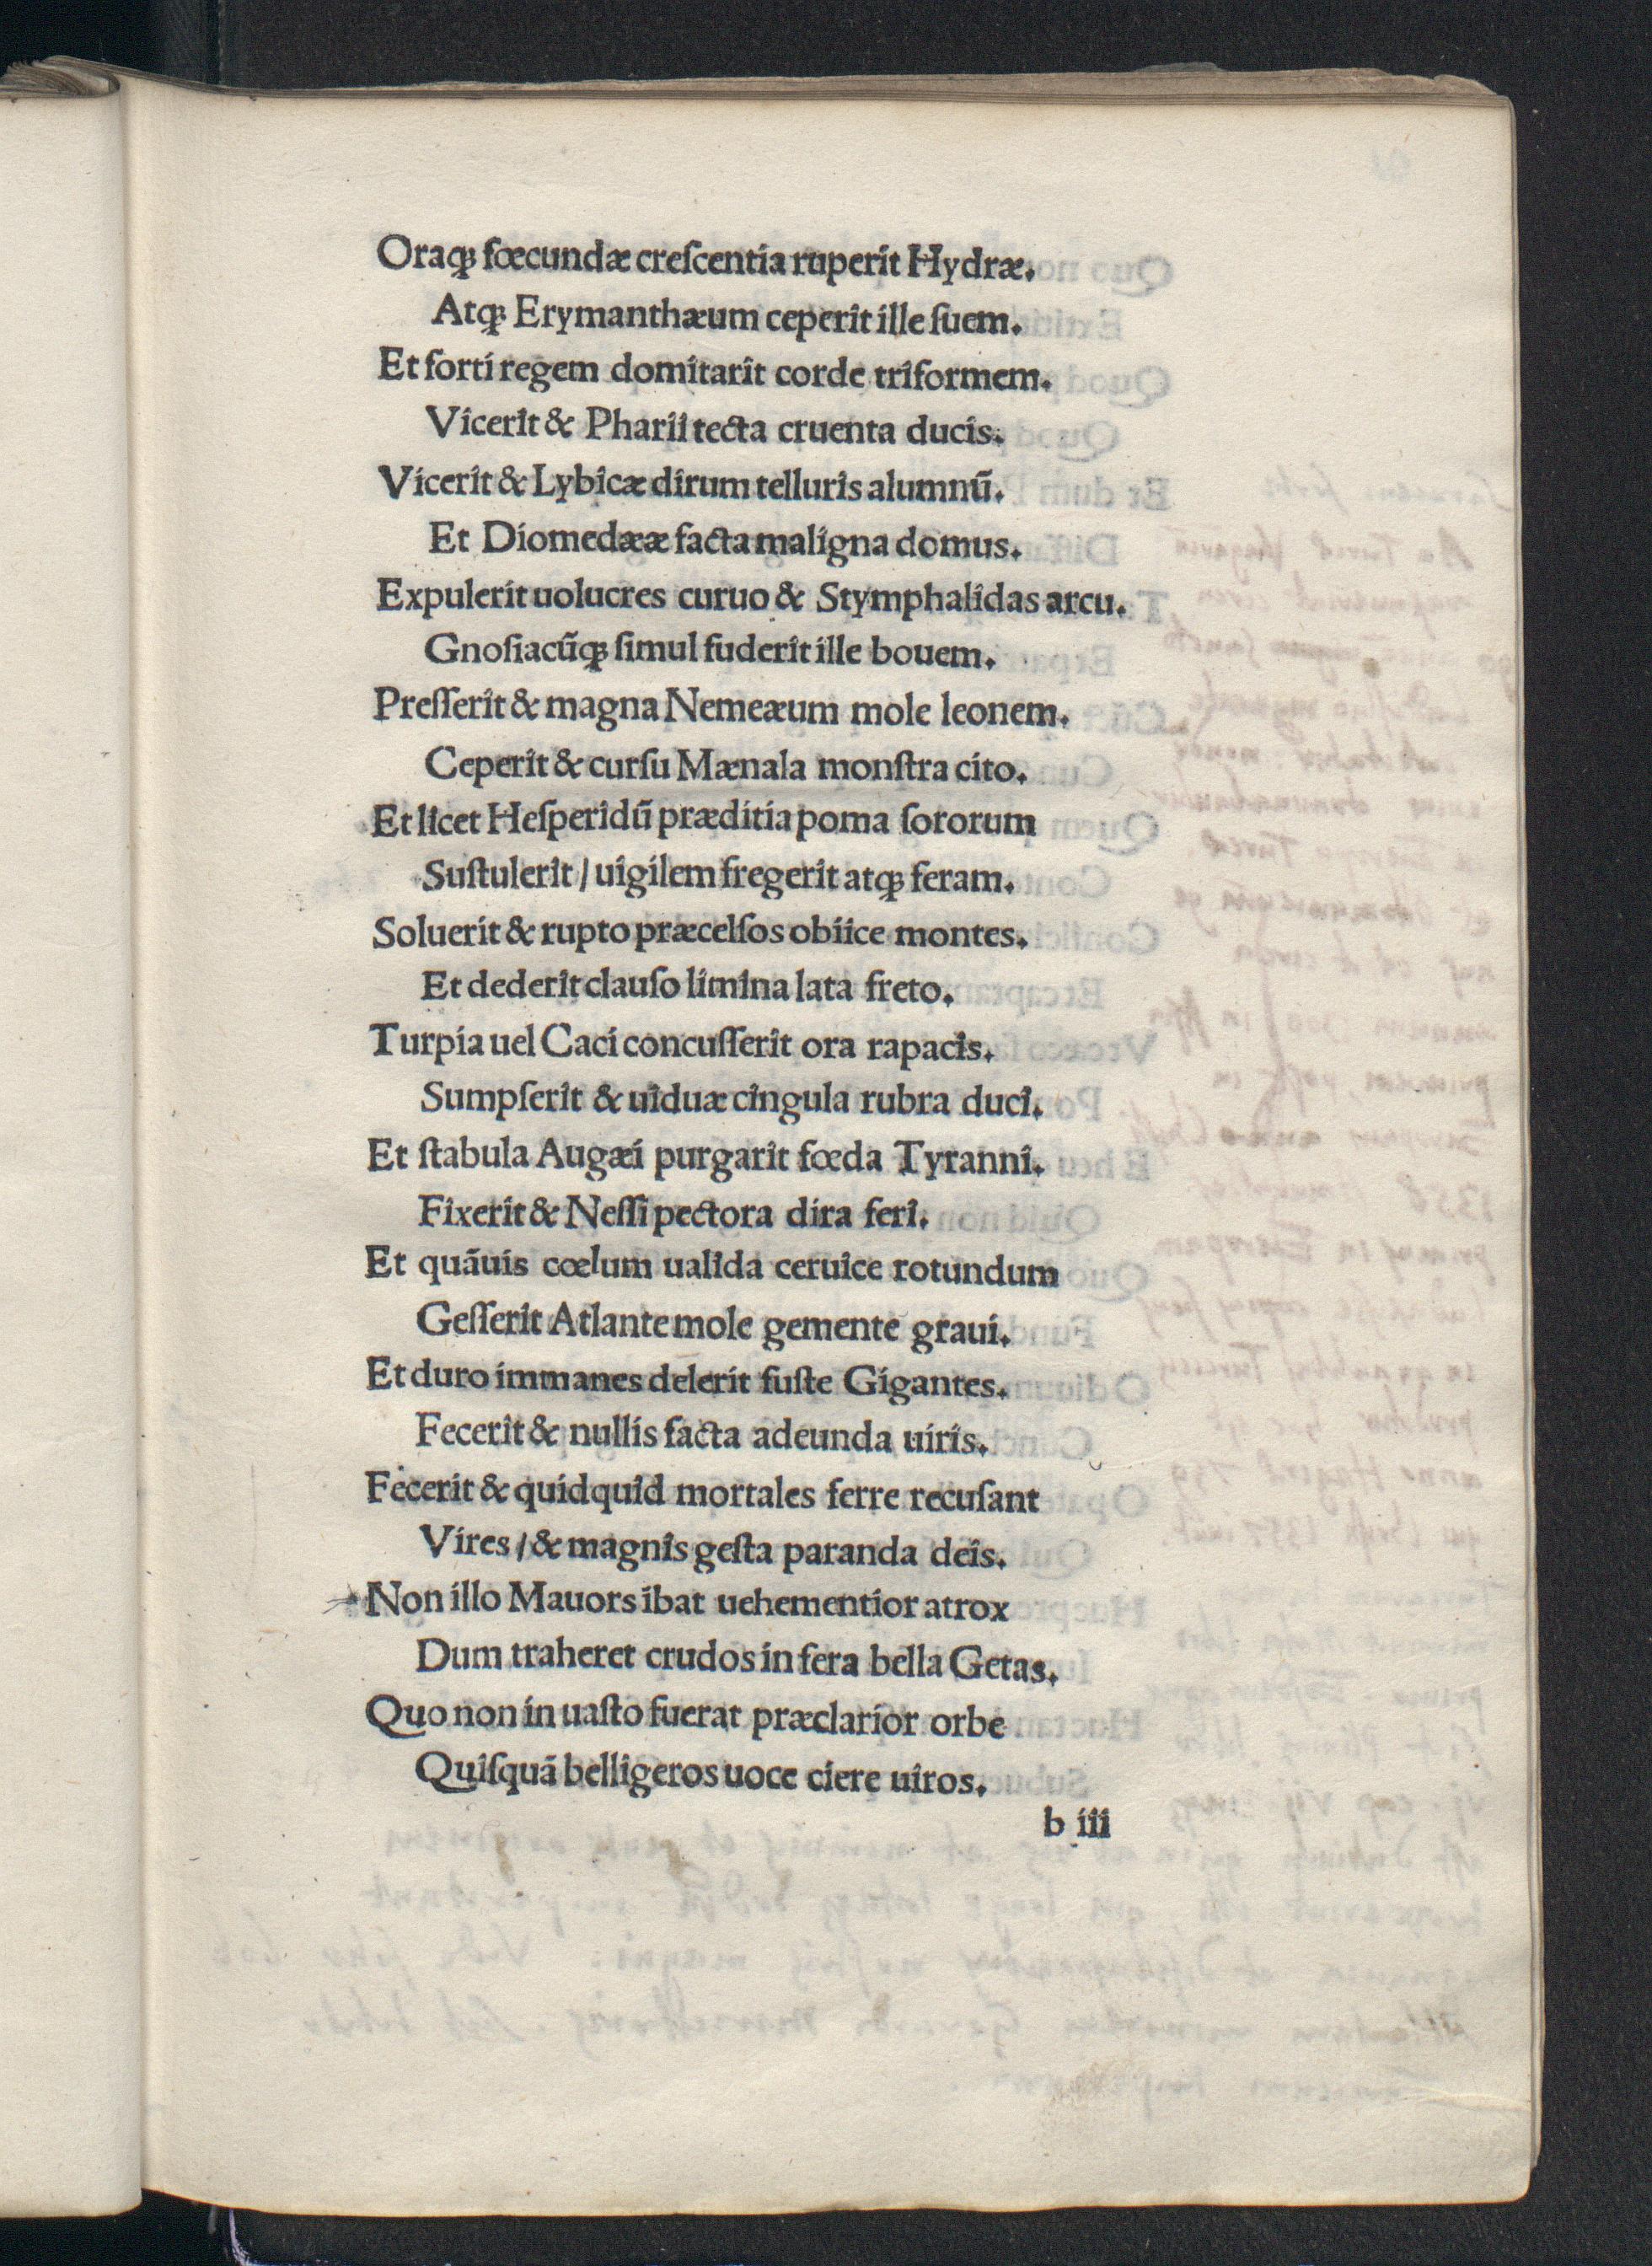 Oraqꝫ fœcundæ creſcentia ruperit Hydræ.
Atqꝫ Erymanthæum ceperit ille ſuem.
Et forti regem domitarit corde triformem.
Vicerit & Pharii tecta cruenta ducis.
Vicerit & Lybicæ dirum telluris alumnū.
Et Diomedææ facta maligna domus.
Expulerit uolucres curuo & Stymphalidas arcu.
Gnoſiacūqꝫ ſimul fuderit ille bouem.
Preſſerit & magna Nemeæum mole leonem.
Ceperit & curſu Mænala monſtra cito.
Et licet Heſperidū præditia poma ſororum
Suſtulerit / uigilem fregerit atqꝫ feram.
Soluerit & rupto præcelſos obiice montes.
Et dederit clauſo limina lata freto.
Turpia uel Caci concuſſerit ora rapacis.
Sumpſerit & uiduæ cingula rubra duci.
Et ſtabula Augæi purgarit fœda Tyranni.
Fixerit & Neſſi pectora dira feri.
Et quāuis cœlum ualida ceruice rotundum
Geſſerit Atlante mole gemente graui.
Et duro immanes delerit fuſte Gigantes.
Fecerit & nullis facta adeunda uiris.
Fecerit & quidquid mortales ferre recuſant
Vires / & magnis geſta paranda deis.
Non illo Mauors ibat uehementior atrox
Dum traheret crudos in fera bella Getas.
Quo non in uaſto fuerat præclarior orbe
Quiſquā belligeros uoce ciere uiros.
b iii